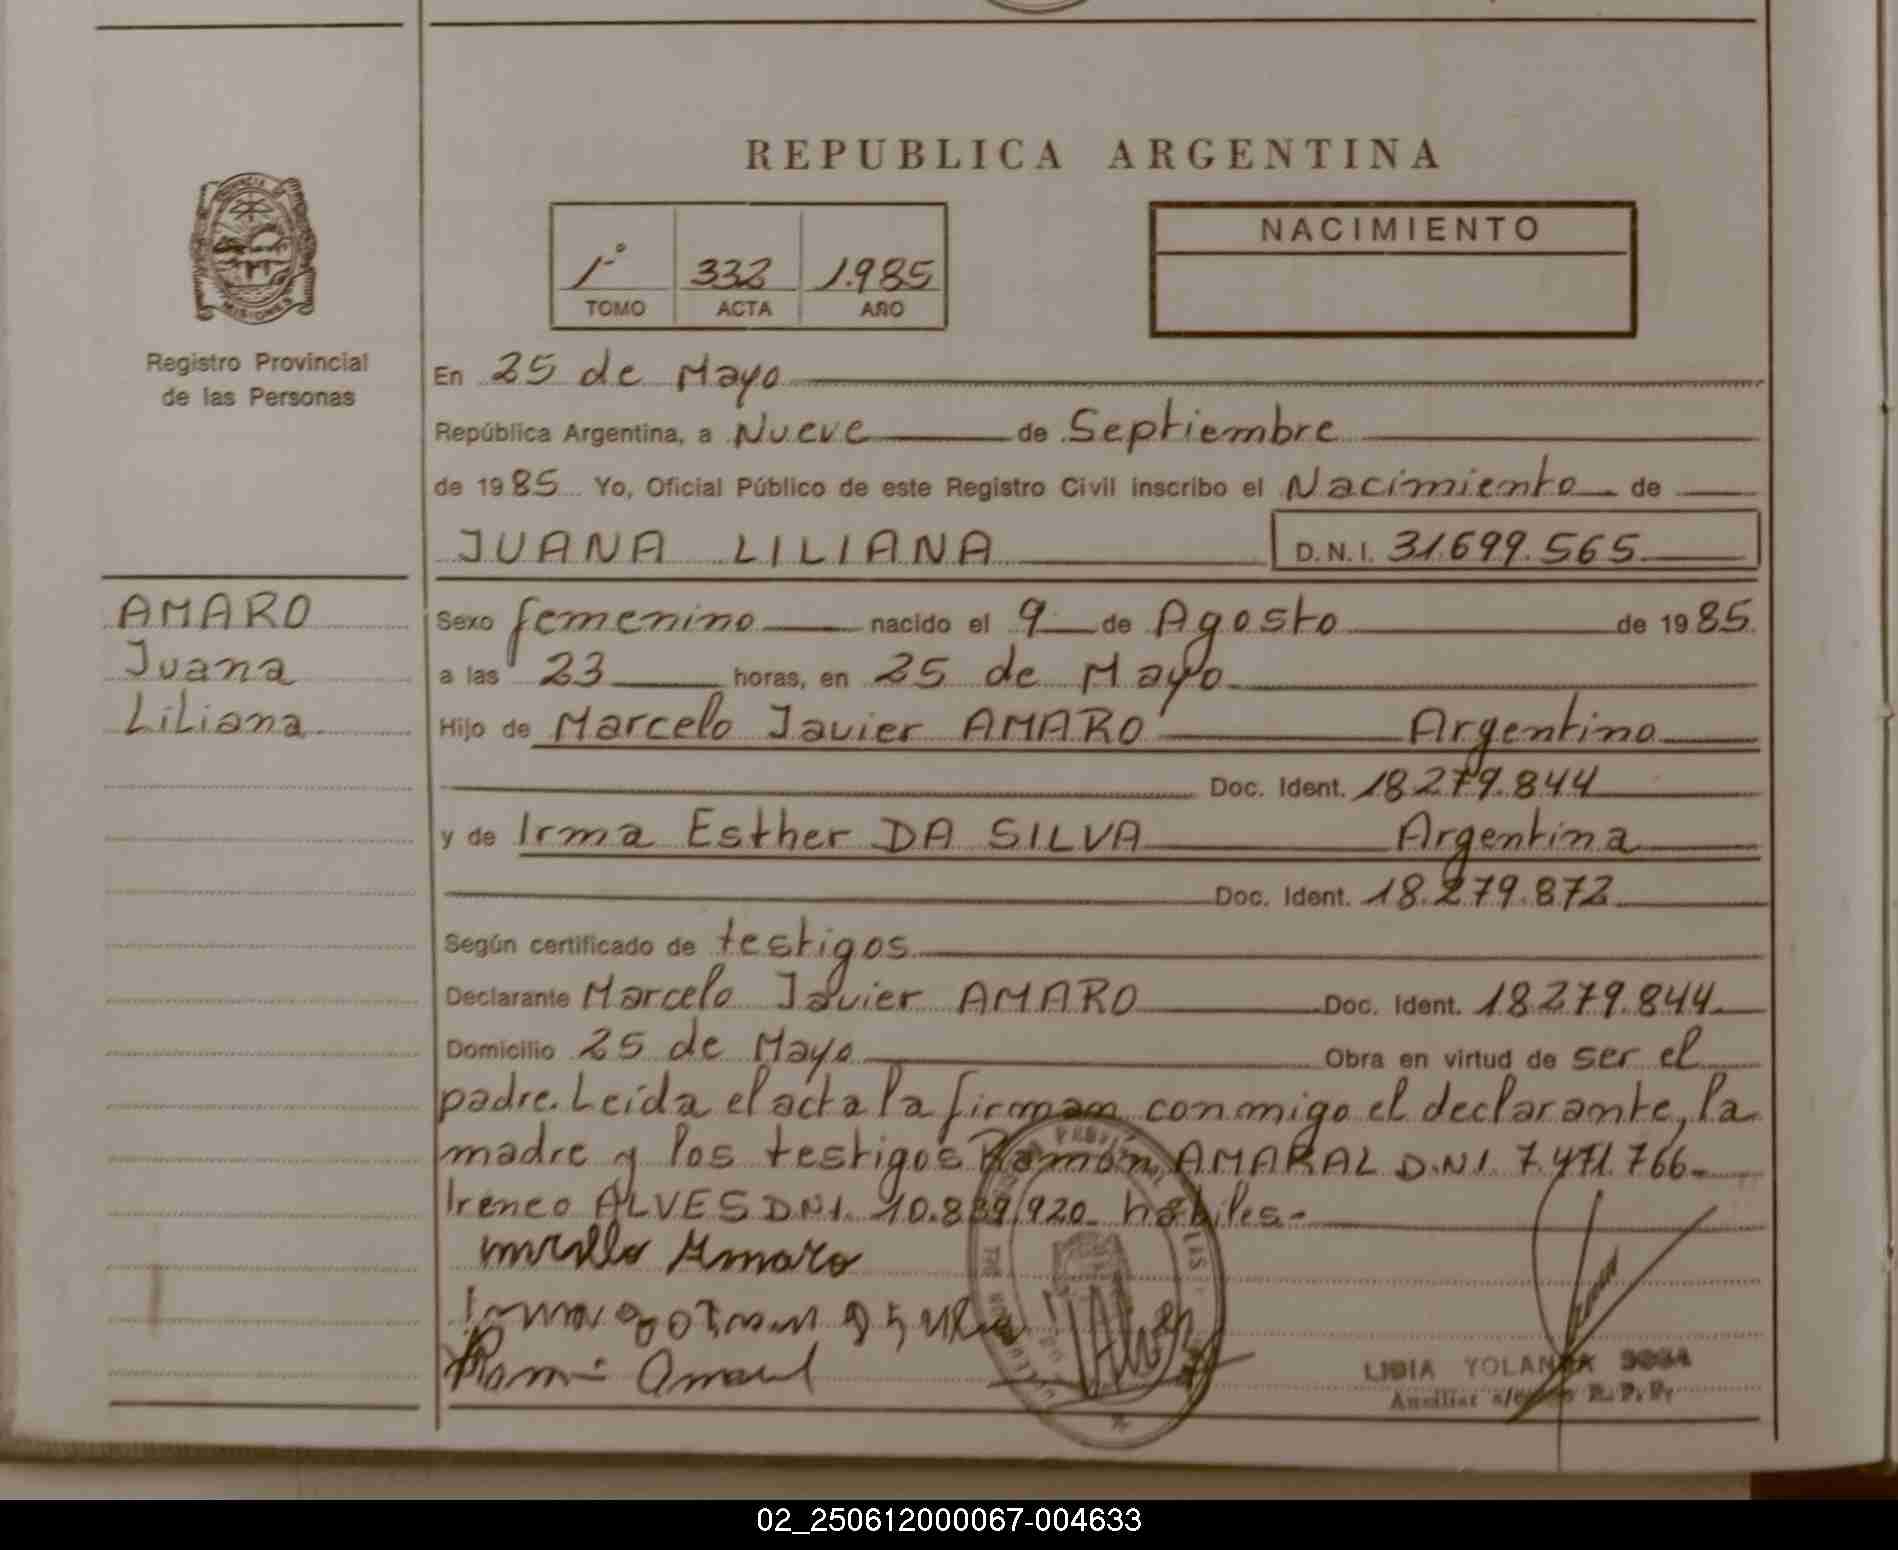 REPUBLICA ARGENTINA
PROVINCIA DE MISIONES
Registro Provincial
de las Personas
1º 332 1.985
TOMO ACTA AÑO
NACIMIENTO
En 25 de Mayo
República Argentina, a Nueve de Septiembre
de 1985 Yo, Oficial Público de este Registro Civil inscribo el Nacimiento de
JUANA LILIANA D.N.I. 31.699.565
AMARO
Juana
Liliana
Sexo femenino nacido el 9 de Agosto de 1985
a las 23 horas, en 25 de Mayo
Hijo de Marcelo Javier AMARO Argentino
Doc. Ident. 18.279.844
y de Irma Esther DA SILVA Argentina
Doc. Ident. 18.279.872
Según certificado de testigos
Declarante Marcelo Javier AMARO Doc. Ident. 18.279.844
Domicilio 25 de Mayo Obra en virtud de ser el
padre. Leída el acta la firman conmigo el declarante, la
madre y los testigos Ramón AMARAL D.N.I. 7.471.766-
Ireneo ALVES D.N.I. 10.889.920 hábiles.-
Amaro
LIDIA YOLANDA SOSA
Auxiliar R.P.P.
02_250612000067-004633